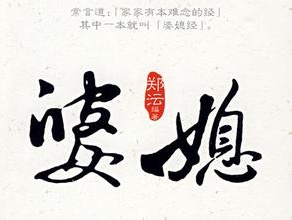 常言道:「家家有本难念的经」
其中一本就叫「婆媳经」。
婆媳
郑沄
编著